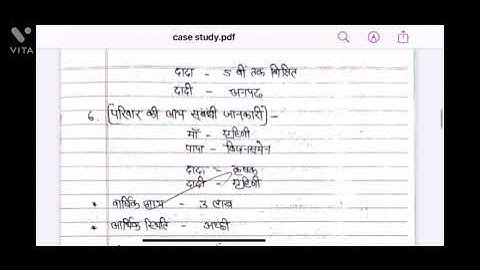 VITA
case study.pdf
दादा - 5 वीं तक शिक्षित
दादी - अनपढ
6. [परिवार की आय संबंधी जानकारी] -
माँ - गृहिणी
पापा - बिजनसमेन
दादा - कृषक
दादी - गृहिणी
* वार्षिक आय - 3 लाख
* आर्थिक स्थिति - अच्छी